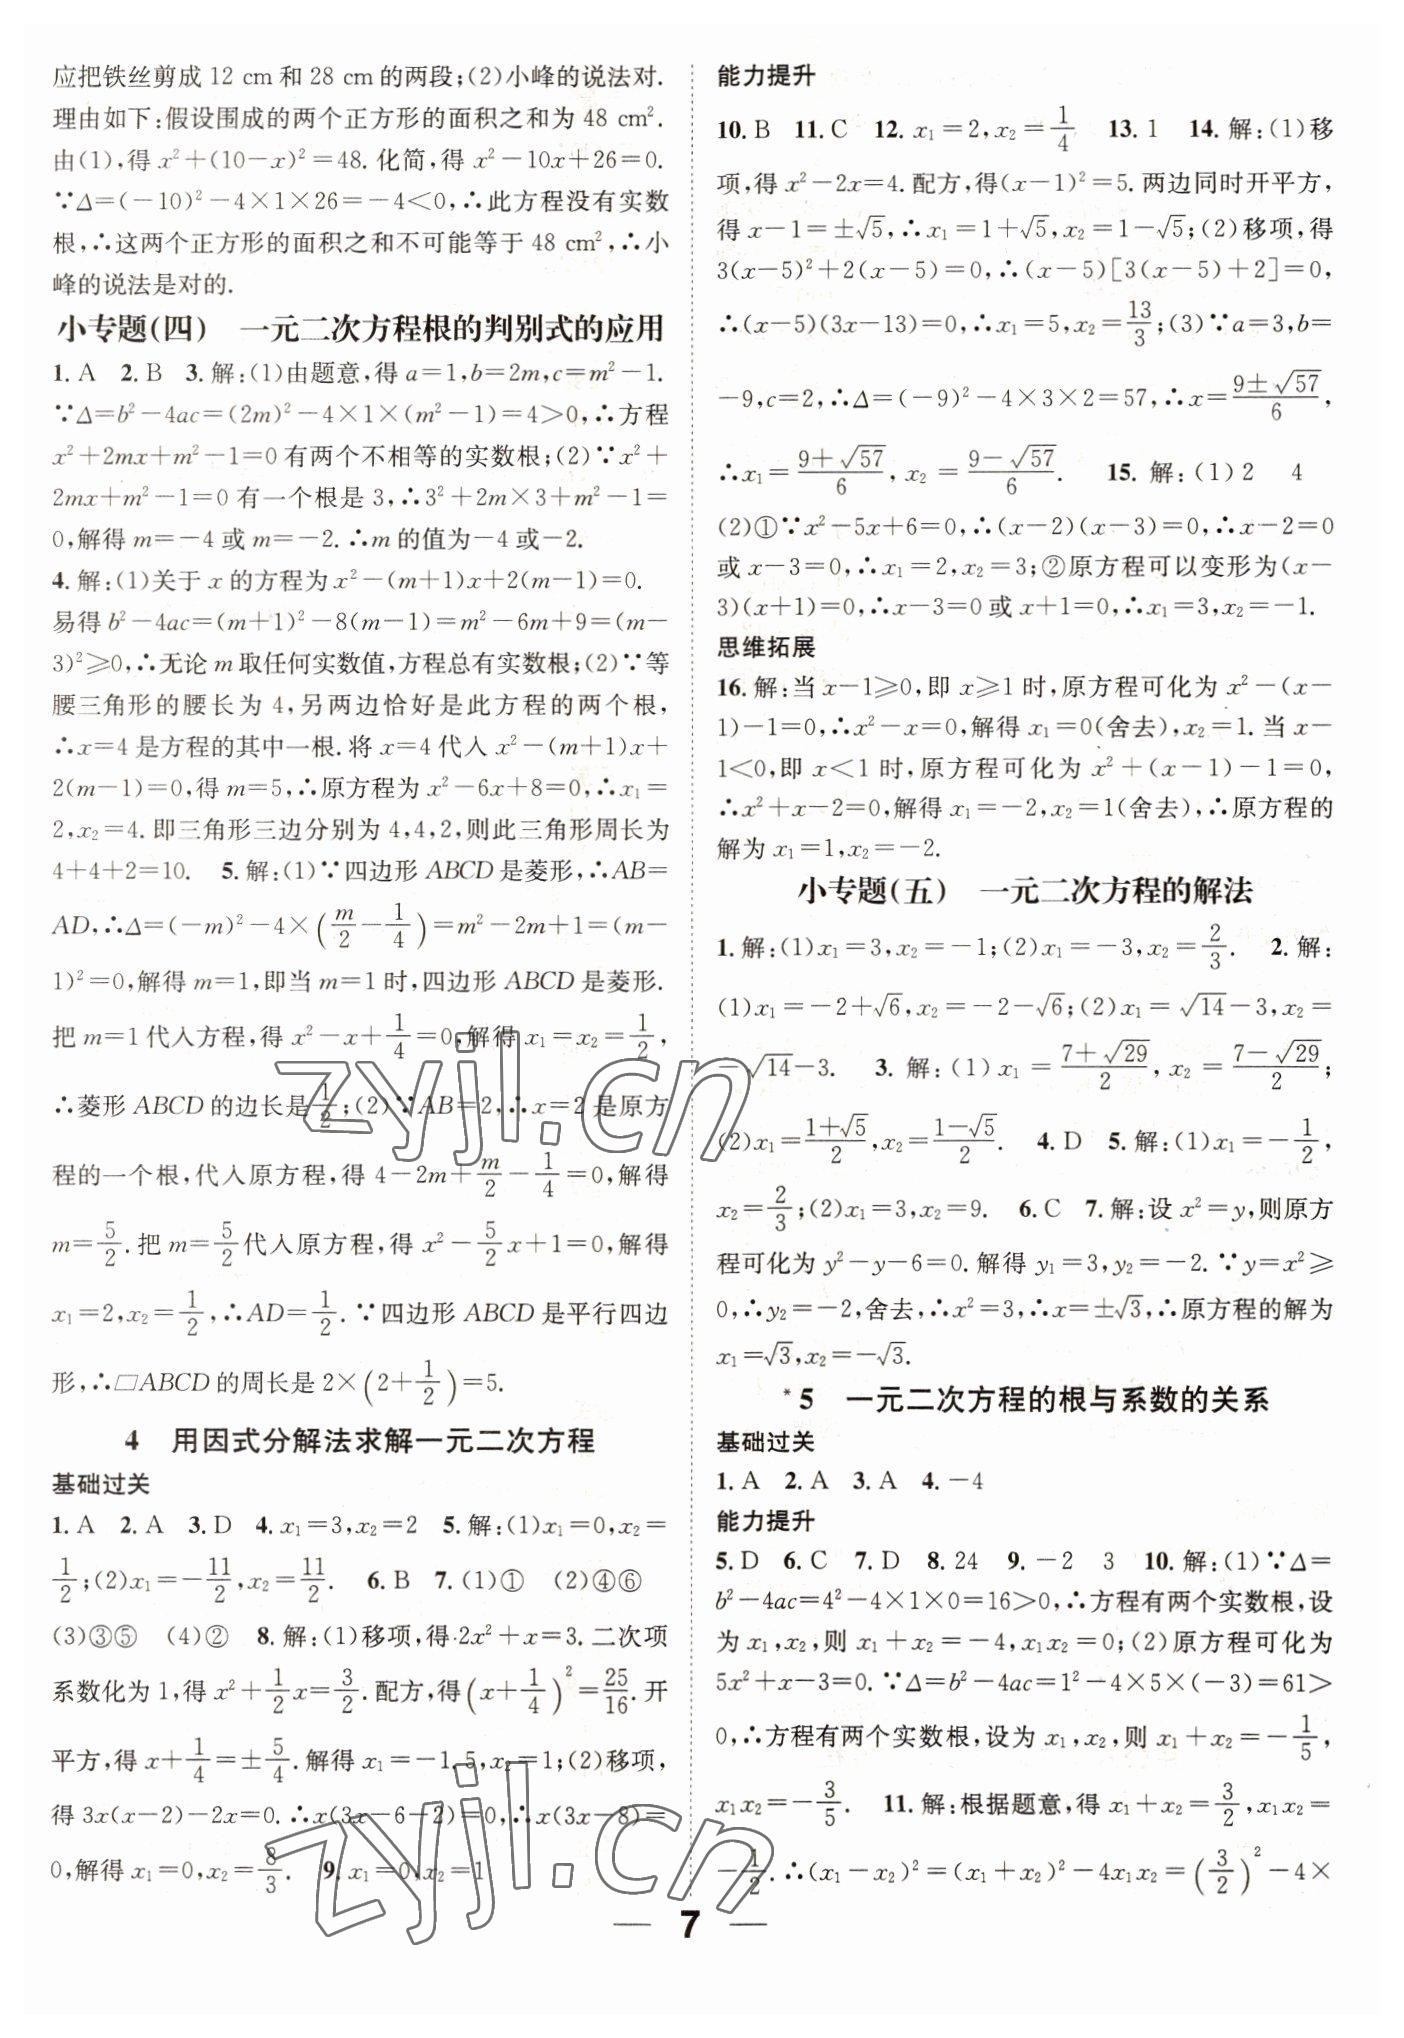 应把铁丝剪成 12 cm 和 28 cm 的两段;(2)小峰的说法对.
理由如下:假设围成的两个正方形的面积之和为 48 cm².
由(1),得 x²+(10-x)²=48. 化简,得 x²-10x+26=0.
∵Δ=(-10)²-4×1×26=-4<0,∴此方程没有实数
根,∴这两个正方形的面积之和不可能等于 48 cm²,∴小
峰的说法是对的.
小专题(四) 一元二次方程根的判别式的应用
1. A 2. B 3. 解:(1)由题意,得 a=1,b=2m,c=m²-1.
∵Δ=b²-4ac=(2m)²-4×1×(m²-1)=4>0,∴方程
x²+2mx+m²-1=0 有两个不相等的实数根;(2)∵x²+
2mx+m²-1=0 有一个根是 3,∴3²+2m×3+m²-1=
0,解得 m=-4 或 m=-2. ∴m 的值为-4 或-2.
4. 解:(1)关于 x 的方程为 x²-(m+1)x+2(m-1)=0.
易得 b²-4ac=(m+1)²-8(m-1)=m²-6m+9=(m-
3)²≥0,∴无论 m 取任何实数值,方程总有实数根;(2)∵等
腰三角形的腰长为 4,另两边恰好是此方程的两个根,
∴x=4 是方程的其中一根. 将 x=4 代入 x²-(m+1)x+
2(m-1)=0,得 m=5,∴原方程为 x²-6x+8=0,∴x₁=
2,x₂=4. 即三角形三边分别为 4,4,2,则此三角形周长为
4+4+2=10. 5. 解:(1)∵四边形 ABCD 是菱形,∴AB=
AD,∴Δ=(-m)²-4×(m/2-1/4)=m²-2m+1=(m-
1)²=0,解得 m=1,即当 m=1 时,四边形 ABCD 是菱形.
把 m=1 代入方程,得 x²-x+1/4=0,解得 x₁=x₂=1/2,
∴菱形 ABCD 的边长是1/2;(2)∵AB=2,∴x=2 是原方
程的一个根,代入原方程,得 4-2m+m/2-1/4=0,解得
m=5/2. 把 m=5/2代入原方程,得 x²-5/2x+1=0,解得
x₁=2,x₂=1/2,∴AD=1/2. ∵四边形 ABCD 是平行四边
形,∴□ABCD 的周长是 2×(2+1/2)=5.
4 用因式分解法求解一元二次方程
基础过关
1. A 2. A 3. D 4. x₁=3,x₂=2 5. 解:(1)x₁=0,x₂=
1/2;(2)x₁=-11/2,x₂=11/2. 6. B 7. (1)① (2)④⑥
(3)③⑤ (4)② 8. 解:(1)移项,得 2x²+x=3. 二次项
系数化为 1,得 x²+1/2x=3/2. 配方,得(x+1/4)²=25/16. 开
平方,得 x+1/4=±5/4. 解得 x₁=-1.5,x₂=1;(2)移项,
得 3x(x-2)-2x=0. ∴x(3x-6-2)=0,∴x(3x-8)=
0,解得 x₁=0,x₂=8/3. 9. x₁=0,x₂=1
能力提升
10. B 11. C 12. x₁=2,x₂=1/4 13. 1 14. 解:(1)移
项,得 x²-2x=4. 配方,得(x-1)²=5. 两边同时开平方,
得 x-1=±√5,∴x₁=1+√5,x₂=1-√5;(2)移项,得
3(x-5)²+2(x-5)=0,∴(x-5)[3(x-5)+2]=0,
∴(x-5)(3x-13)=0,∴x₁=5,x₂=13/3;(3)∵a=3,b=
-9,c=2,∴Δ=(-9)²-4×3×2=57,∴x=(9±√57)/6,
∴x₁=(9+√57)/6,x₂=(9-√57)/6. 15. 解:(1)2 4
(2)①∵x²-5x+6=0,∴(x-2)(x-3)=0,∴x-2=0
或 x-3=0,∴x₁=2,x₂=3;②原方程可以变形为(x-
3)(x+1)=0,∴x-3=0 或 x+1=0,∴x₁=3,x₂=-1.
思维拓展
16. 解:当 x-1≥0,即 x≥1 时,原方程可化为 x²-(x-
1)-1=0,∴x²-x=0,解得 x₁=0(舍去),x₂=1. 当 x-
1<0,即 x<1 时,原方程可化为 x²+(x-1)-1=0,
∴x²+x-2=0,解得 x₁=-2,x₂=1(舍去),∴原方程的
解为 x₁=1,x₂=-2.
小专题(五) 一元二次方程的解法
1. 解:(1)x₁=3,x₂=-1;(2)x₁=-3,x₂=2/3. 2. 解:
(1)x₁=-2+√6,x₂=-2-√6;(2)x₁=√14-3,x₂=
-√14-3. 3. 解:(1)x₁=(7+√29)/2,x₂=(7-√29)/2;
(2)x₁=(1+√5)/2,x₂=(1-√5)/2. 4. D 5. 解:(1)x₁=-1/2,
x₂=2/3;(2)x₁=3,x₂=9. 6. C 7. 解:设 x²=y,则原方
程可化为 y²-y-6=0. 解得 y₁=3,y₂=-2. ∵y=x²≥
0,∴y₂=-2,舍去,∴x²=3,∴x=±√3,∴原方程的解为
x₁=√3,x₂=-√3.
*5 一元二次方程的根与系数的关系
基础过关
1. A 2. A 3. A 4. -4
能力提升
5. D 6. C 7. D 8. 24 9. -2 3 10. 解:(1)∵Δ=
b²-4ac=4²-4×1×0=16>0,∴方程有两个实数根,设
为 x₁,x₂,则 x₁+x₂=-4,x₁x₂=0;(2)原方程可化为
5x²+x-3=0. ∵Δ=b²-4ac=1²-4×5×(-3)=61>
0,∴方程有两个实数根,设为 x₁,x₂,则 x₁+x₂=-1/5,
x₁x₂=-3/5. 11. 解:根据题意,得 x₁+x₂=3/2,x₁x₂=
-1/2. ∴(x₁-x₂)²=(x₁+x₂)²-4x₁x₂=(3/2)²-4×
— 7 —
zyjl.cn
zyjl.cn